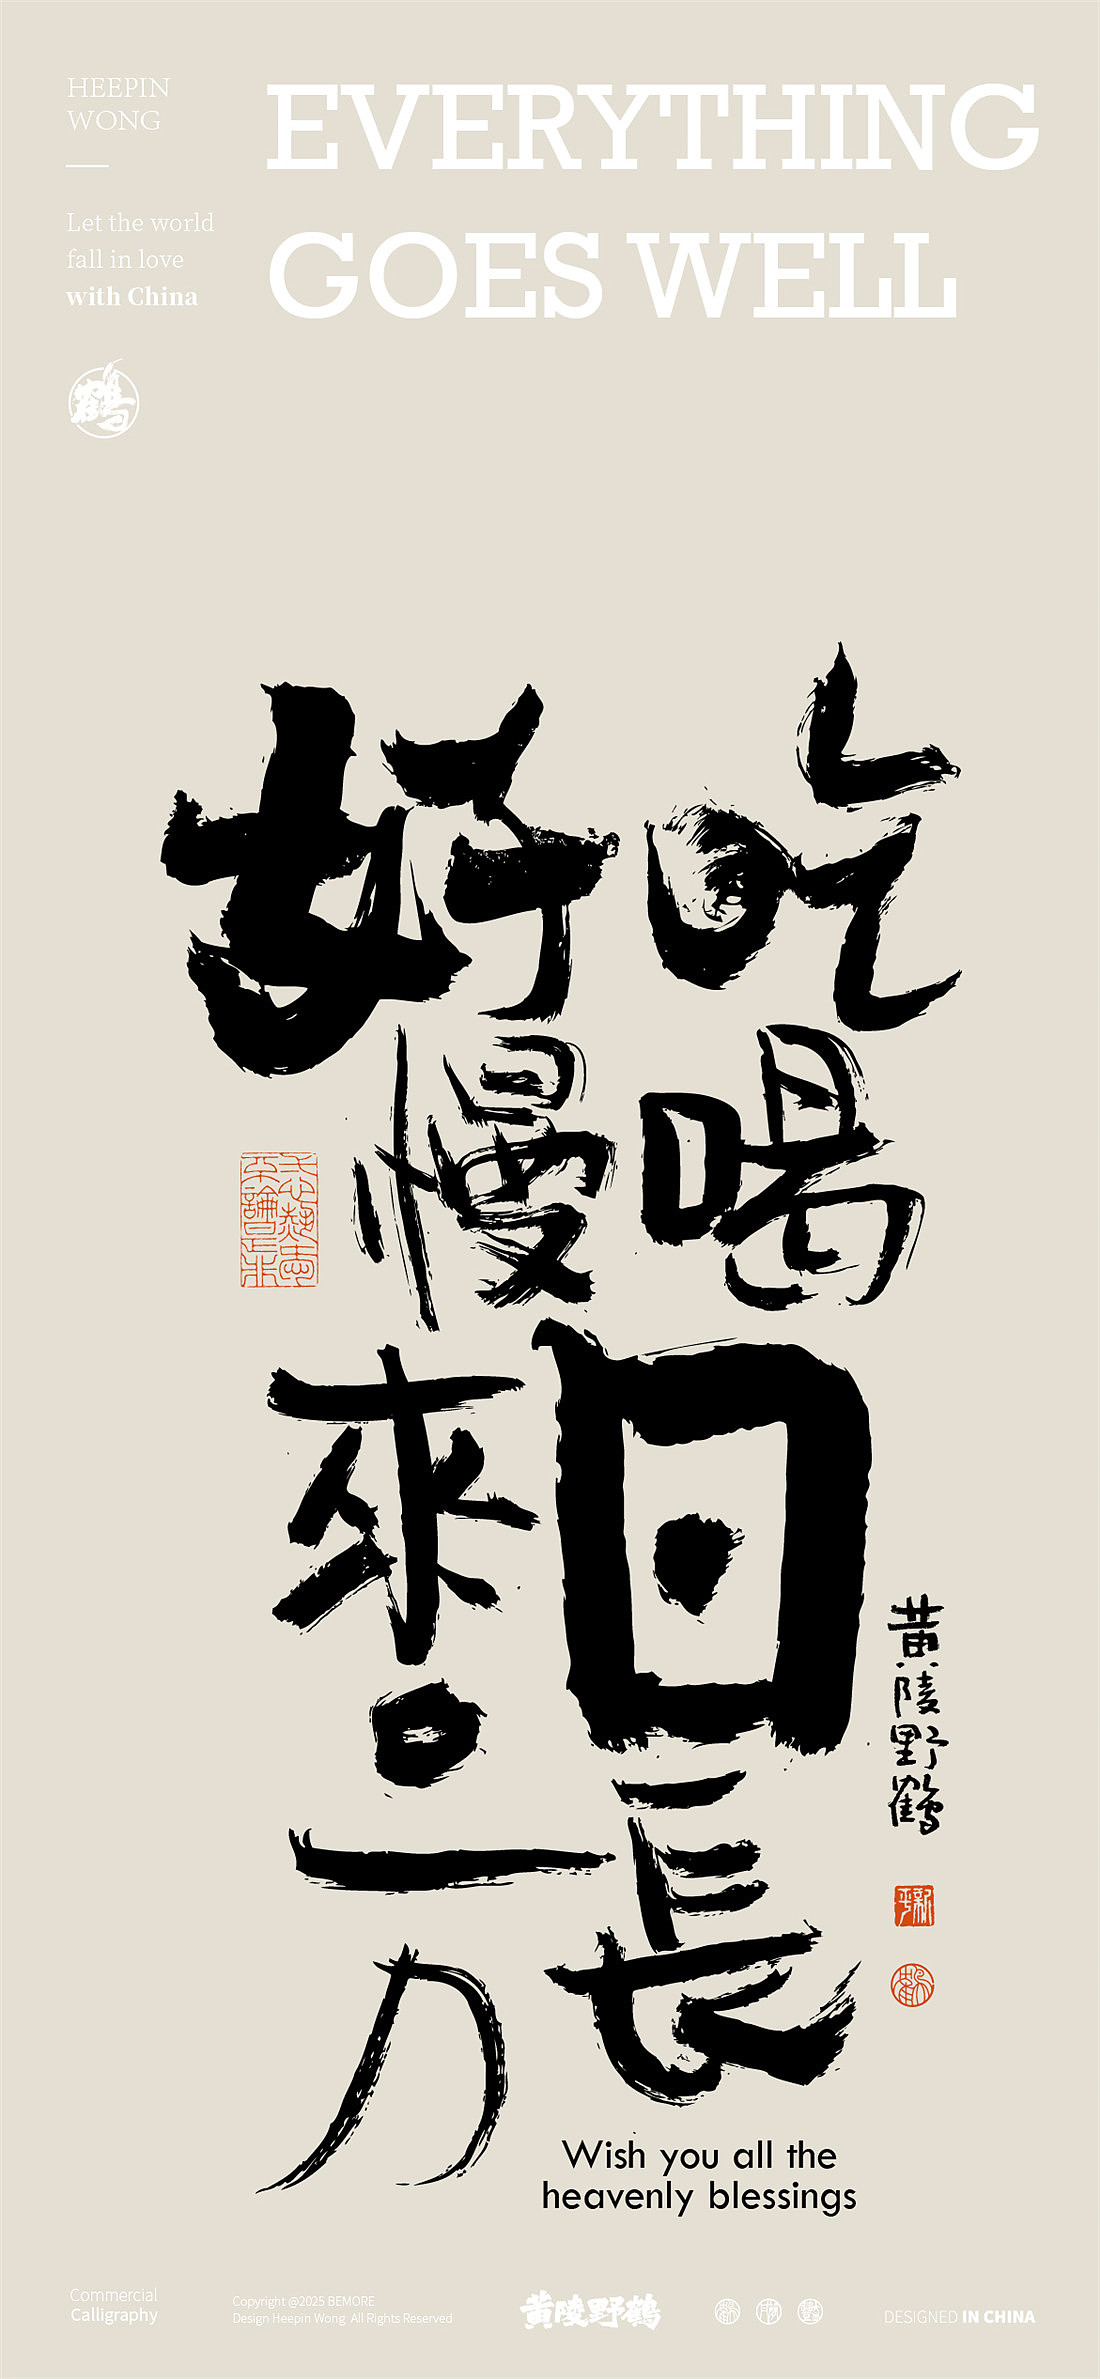 HEEPIN
WONG
EVERYTHING
GOES WELL
Let the world
fall in love
with China
鶴
好吃
慢喝
來日
方長
黄陵野鶴
Wish you all the
heavenly blessings
Commercial
Calligraphy
Copyright @2025 BEMORE
Design Heepin Wong All Rights Reserved
黄陵野鶴
DESIGNED IN CHINA